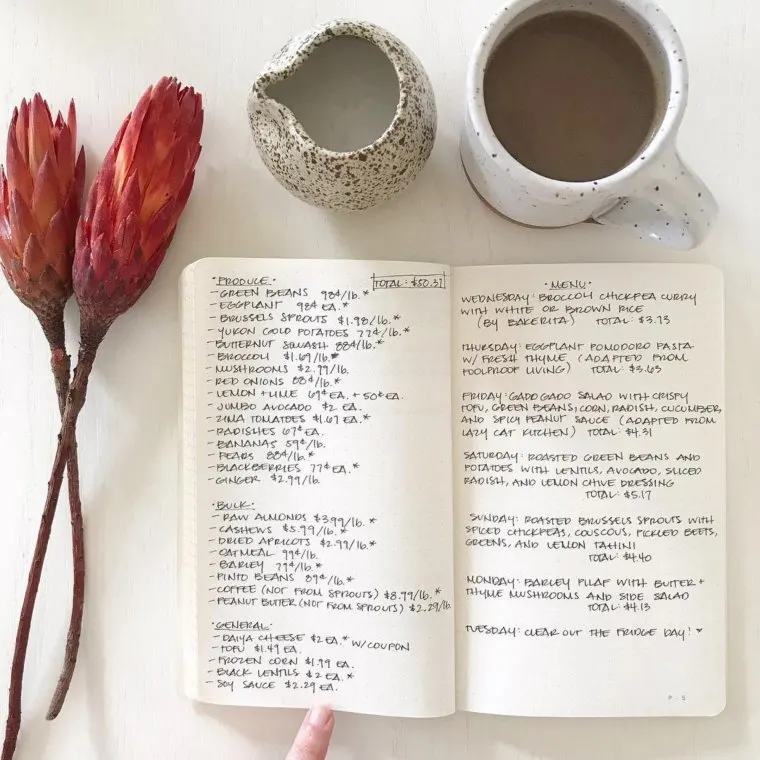 ·PRODUCE·
TOTAL: $50.37
- GREEN BEANS 98¢/lb.*
- EGGPLANT 98¢ EA.*
- BRUSSELS SPROUTS $1.98/lb.*
- YUKON GOLD POTATOES 77¢/lb.*
- BUTTERNUT SQUASH 88¢/lb.*
- BROCCOLI $1.69/lb.*
- MUSHROOMS $2.99/lb.
- RED ONIONS 88¢/lb.*
- LEMON + LIME 69¢ EA. + 50¢ EA.
- JUMBO AVOCADO $2 EA.
- ZIMA TOMATOES $1.67 EA.*
- RADISHES 67¢ EA.
- BANANAS 59¢/lb.
- PEARS 88¢/lb.*
- BLACKBERRIES 77¢ EA.*
- GINGER $2.99/lb.
·BULK·
- RAW ALMONDS $3.99/lb.*
- CASHEWS $5.99/lb.*
- DRIED APRICOTS $2.99/lb.*
- OATMEAL 99¢/lb.
- BARLEY 79¢/lb.*
- PINTO BEANS 89¢/lb.*
- COFFEE (NOT FROM SPROUTS) $8.99/lb.*
- PEANUT BUTTER (NOT FROM SPROUTS) $2.29/lb.
·GENERAL·
- DAIYA CHEESE $2 EA.* W/COUPON
- TOFU $1.49 EA.
- FROZEN CORN $1.99 EA.
- BLACK LENTILS $2 EA.*
- SOY SAUCE $2.29 EA.
·MENU·
WEDNESDAY: BROCCOLI CHICKPEA CURRY
WITH WHITE OR BROWN RICE
(BY BAKERITA) TOTAL: $3.73
THURSDAY: EGGPLANT POMODORO PASTA
W/ FRESH THYME (ADAPTED FROM
FOOLPROOF LIVING) TOTAL: $3.63
FRIDAY: GADO GADO SALAD WITH CRISPY
TOFU, GREEN BEANS, CORN, RADISH, CUCUMBER,
AND SPICY PEANUT SAUCE (ADAPTED FROM
LAZY CAT KITCHEN) TOTAL: $4.31
SATURDAY: ROASTED GREEN BEANS AND
POTATOES WITH LENTILS, AVOCADO, SLICED
RADISH, AND LEMON CHIVE DRESSING
TOTAL: $5.17
SUNDAY: ROASTED BRUSSELS SPROUTS WITH
SPICED CHICKPEAS, COUSCOUS, PICKLED BEETS,
GREENS, AND LEMON TAHINI
TOTAL: $4.40
MONDAY: BARLEY PILAF WITH BUTTER +
THYME MUSHROOMS AND SIDE SALAD
TOTAL: $4.13
TUESDAY: CLEAR OUT THE FRIDGE DAY! *
P. 5